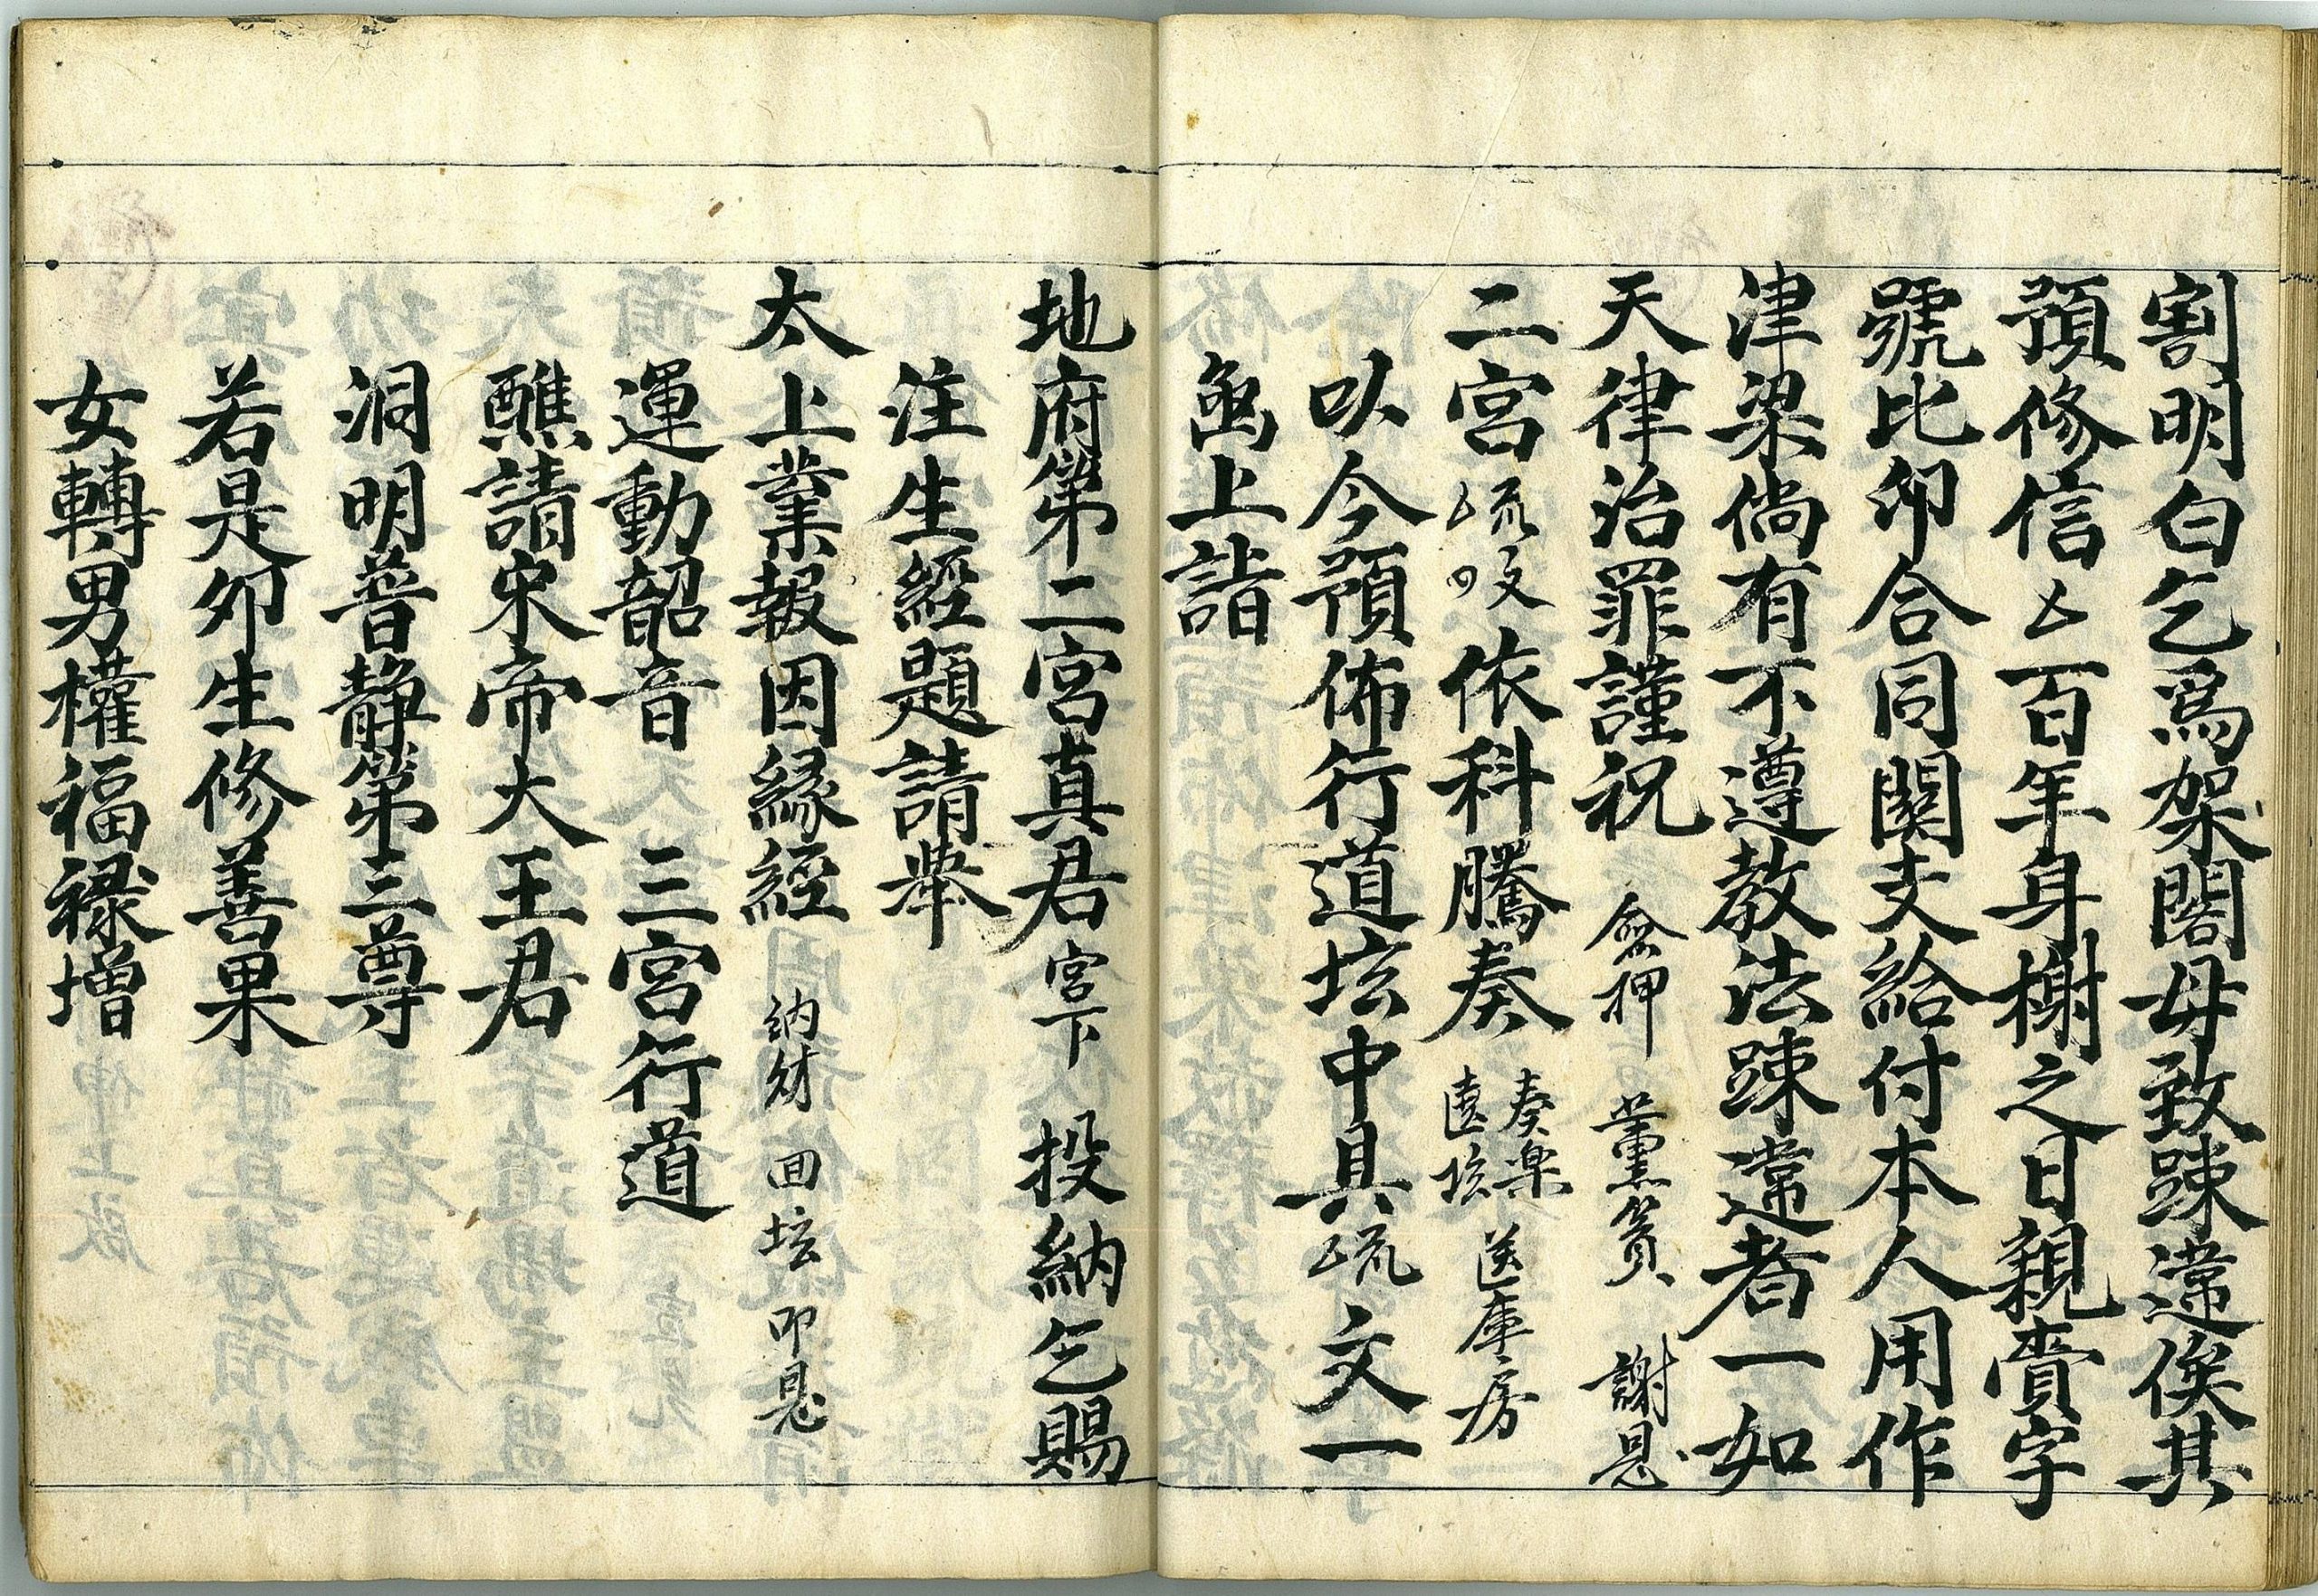 割明白乞為架閣毋致踈違俟其
預修信厶百年身榭之日親賫字
號比卯合同關支給付本人用作
津梁倘有不遵教法踈違者一如
天律治罪謹祝 僉押 薰筼 謝恩
二宮 疏文 依科騰奏 奏樂 遶坛 送庫房
㕥今預佈行道坛中具疏文一
凾上詣
地府第二宮真君 宮下 投納乞賜
注生經題請舉
太上業報因緣經 納財 回坛 叩恩
運動韶音 三宮行道
醮請宋帝大王君
洞明普静第三尊
若是卯生修善果
女轉男權福禄增